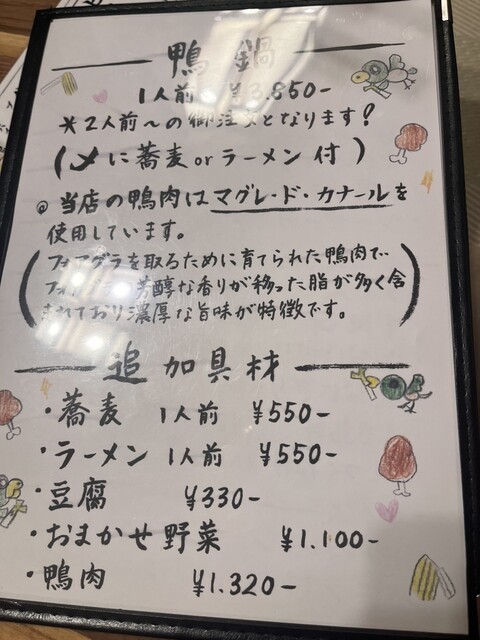 鴨鍋
1人前 ¥3,850-
*2人前〜の御注文となります!
(〆に蕎麦orラーメン付)
◎当店の鴨肉はマグレ・ド・カナールを
使用しています。
(フォアグラを取るために育てられた鴨肉で
フォアグラの芳醇な香りが移った脂が多く含
まれており濃厚な旨味が特徴です。)
追加具材
・蕎麦 1人前 ¥550-
・ラーメン 1人前 ¥550-
・豆腐 ¥330-
・おまかせ野菜 ¥1.100-
・鴨肉 ¥1.320-